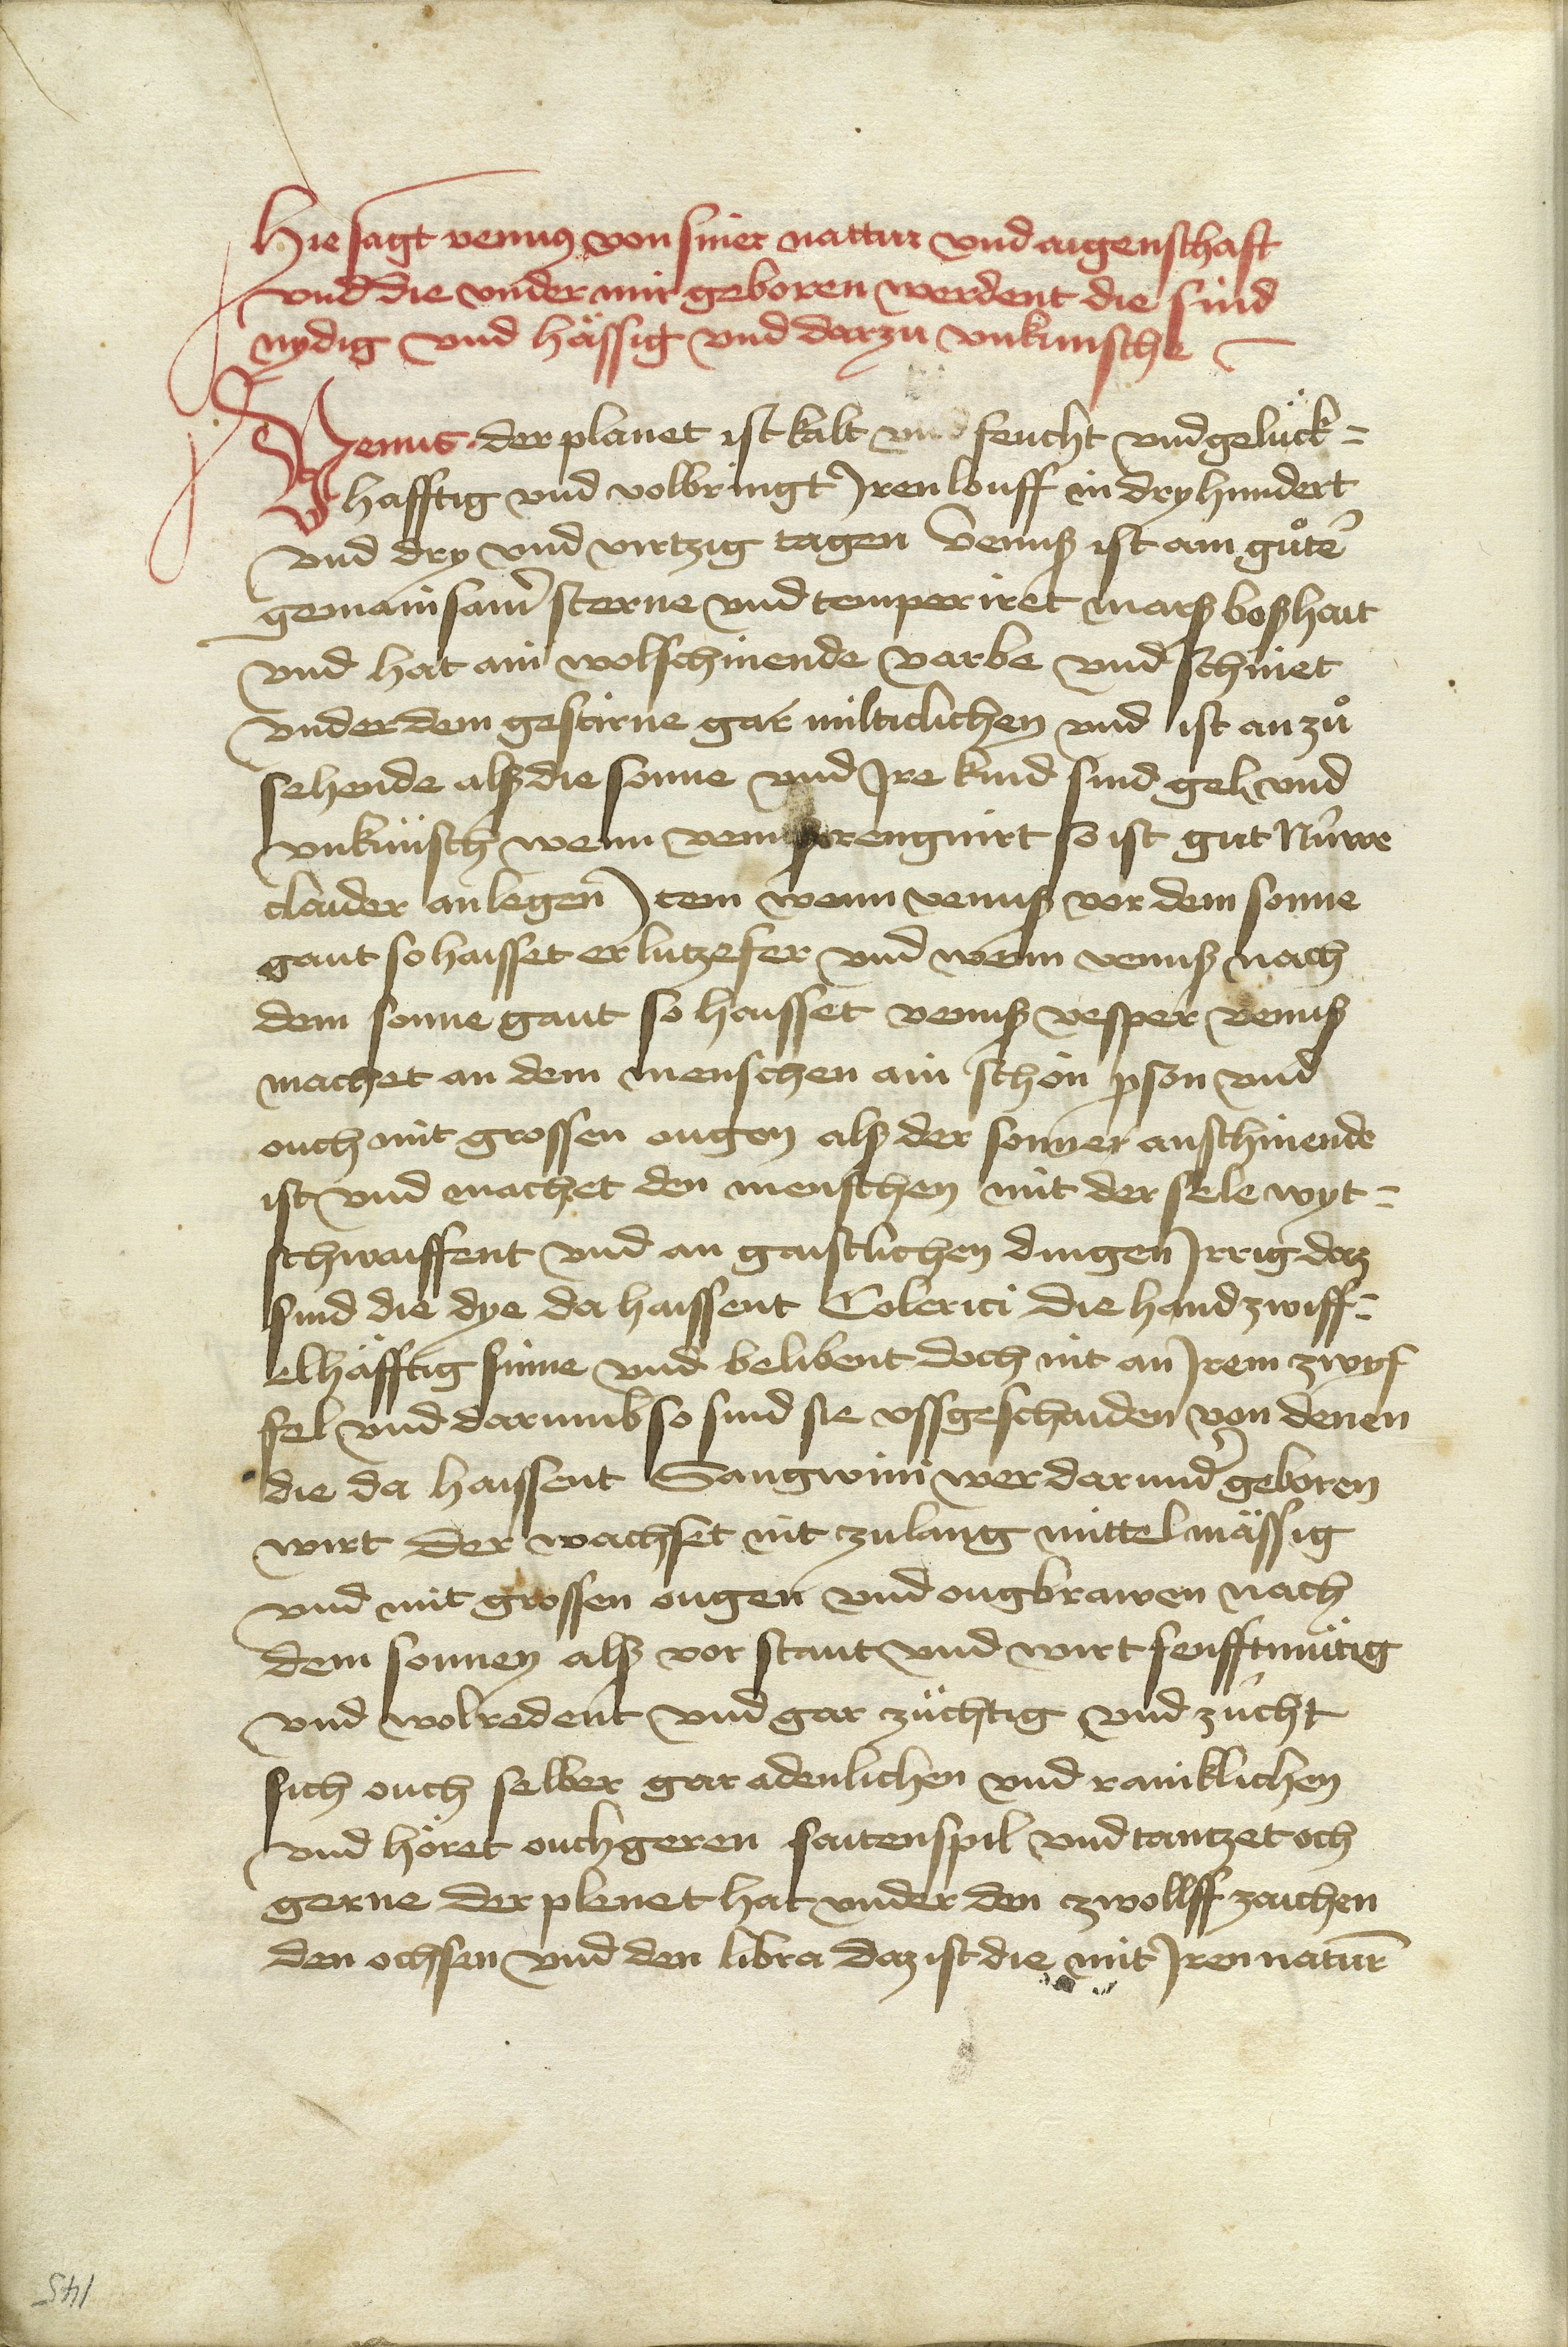 Hie sagt venus von siner nattur vnd aigenschaft
vnd die vnder mir geboren werdent die sind
nydig vnd hässig vnd darzu vnkuische
Venus der planet ist kalt vnd feucht vnd gelück=
hafftig vnd volbringt Iren louff in dry hundert
vnd dry vnd virtzig tagen Venuß ist ain gůte᷑
gemainsame᷑ sterne vnd temperiret marß boßhait
vnd hat ain wolschinende varbe vnd schinet
vnder dem gestirne gar milticlichen vnd ist an zů
sehende alß die sonne vnd Ire kind sind gel vnd
vnküisch wenn venuß rengnirt so ist gut Nüwe
claider an legen Item wenn venuß vor dem sonne
gaut so haisset er lutzefer vnd wenn venuß nach
dem sonne gaut so haisset venuß vesper venuß
machet an dem menschen ain schön pson vnd
ouch mit grossen ougen alß der sonnen anschinende
ist vnd machet den menschen mit der sele wyt=
schwaiffent vnd an gaistlichen dingen Irrig daz
sind die dye da haissent Colerici die hand zwiff=
elhäfftig sinne vnd belibent doch nit an Irem zwyf
fel vnd darumb so sind sie vssgeschaiden von denen
die da haissent Sangwini wer darund᷑ geboren
wirt der wachset nit zu lang mittelmässig
vnd mit grossen ougen vnd ougbrawen nach
dem sonnen alß vor staut vnd wirt senfftmütig
vnd wolredent vnd gar züchtig vnd zücht
sich ouch selber gar adenlichen vnd rainklichen
vnd höret ouch geren saitenspil vnd tantzet och
gerne der plenet hat vnder den zwollff zaichen
den ochsen vnd den libra daz ist die mit Iren natur̄
145